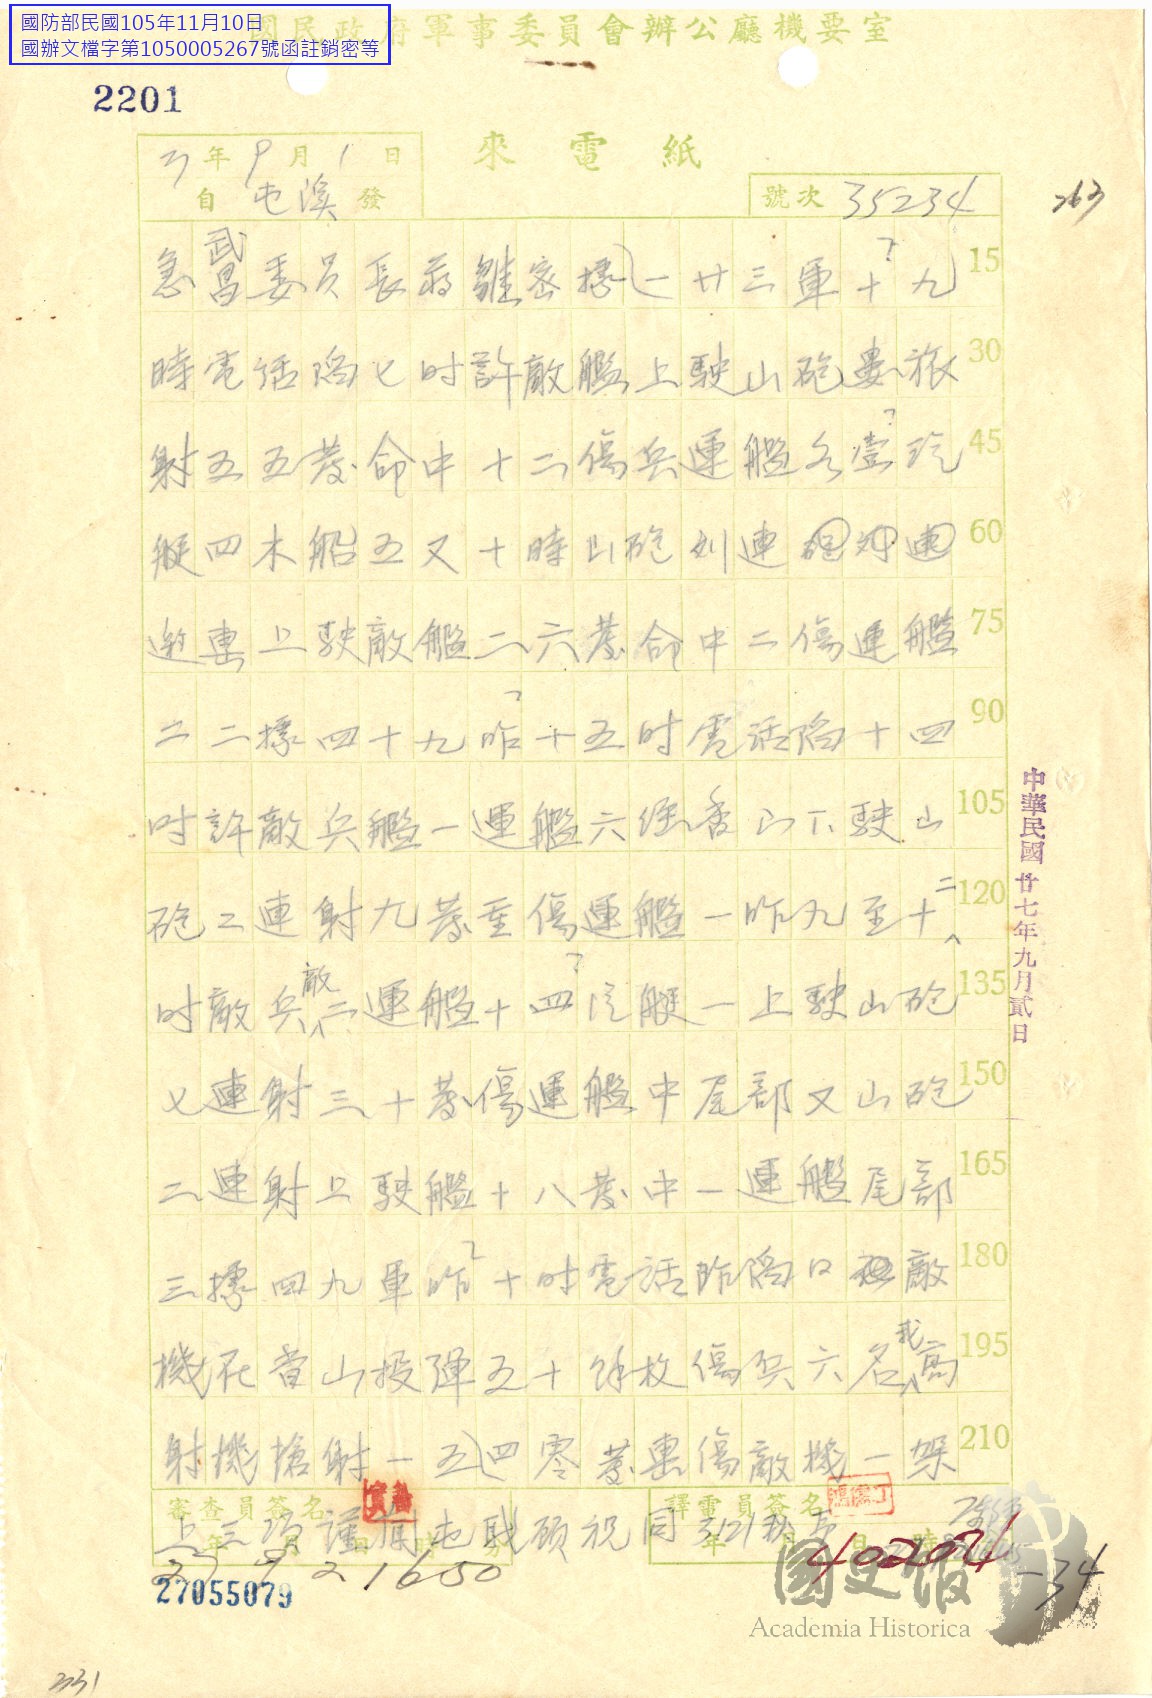 國防部民國105年11月10日
國辦文檔字第1050005267號函註銷密等
國民政府軍事委員會辦公廳機要室
2201
來電紙
年9月1日
自屯溪發
號次 35234
263
急武昌委員長蔣雛密據(一廿三軍十九 15
時電話稱七時許敵艦上駛山砲婁旅 30
射五五發命中十二傷兵運艦各壹汽 45
艇四木船五又十時山砲刘連 60
連上駛敵艦二六發命中二傷運艦 75
二二據四十九昨十五时電話稱十四 90
时許敵兵艦一運艦六經香山下駛山 105
砲二連射九發重傷運艦一昨九至十二 120
时敵兵敵二運艦十四汽艇一上駛山砲 135
七連射三十發傷運艦中尾部又山砲 150
二連射上駛艦十八發中一運艦尾部 165
三據四九軍昨十时電話昨稱口敵 180
機在香山投彈五十餘枚傷兵六名我高 195
射機搶射一五四零發惠傷敵機一架 210
審查員簽名
譯電員簽名
上三項謹聞屯職顧祝同
年月日時分
27 9 2 1650
年月日時
40204
-34
27055079
中華民國廿七年九月貳日
國史館
Academia Historica
2231